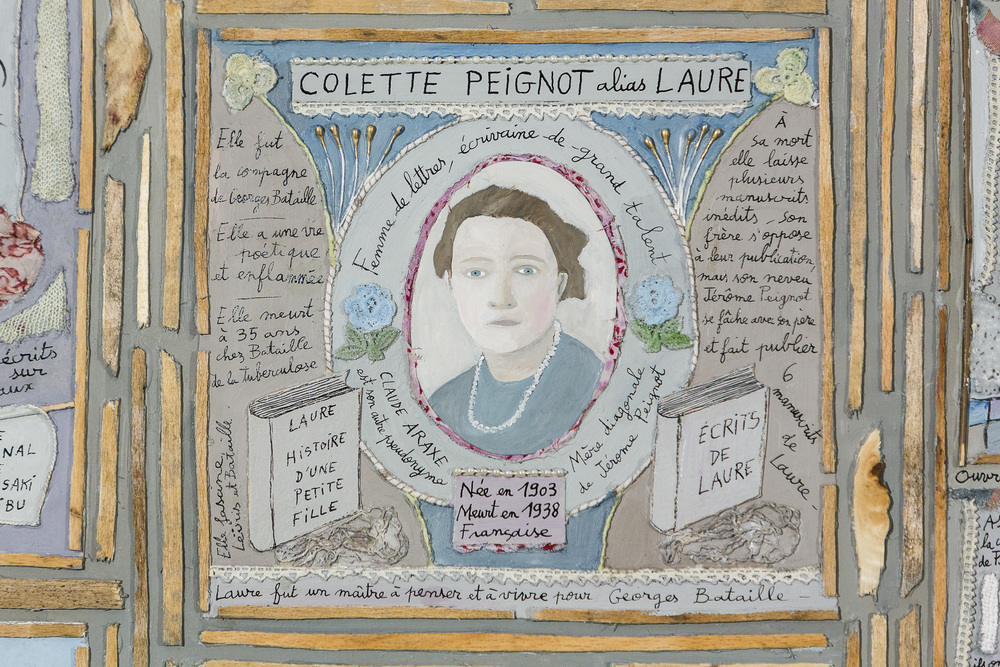 COLETTE PEIGNOT alias LAURE
Elle fut
la compagne
de Georges Bataille
Elle a une vie
poétique
et enflammée
Elle meurt
à 35 ans
chez Bataille
de la tuberculose
Elle fascine
Leiris et Bataille.
Femme de lettres, écrivaine de grand talent
CLAUDE ARAXE
est son autre pseudonyme
Mère diagonale
de Jérôme Peignot
À
sa mort
elle laisse
plusieurs
manuscrits
inédits, son
frère s'oppose
à leur publication,
mais son neveu
Jérôme Peignot
se fâche avec son père
et fait publier
6
manuscrits
de Laure.
LAURE
HISTOIRE
D'UNE
PETITE
FILLE
ÉCRITS
DE
LAURE
Née en 1903
Meurt en 1938
Française
Laure fut un maître à penser et à vivre pour Georges Bataille –
écrits
sur
aux
NAL
SAKI
BU
Ouvr